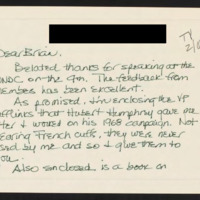 TV
Dear Brian,
Belated thanks for speaking at the
WNDC on the 9th. The feedback from
members has been excellent.
As promised, I'm enclosing the VP
cufflinks that Hubert Humphrey gave me
after I worked on his 1968 campaign. Not
wearing French cuffs, they were never
used by me and so I give them to
you.
Also enclosed is a book on